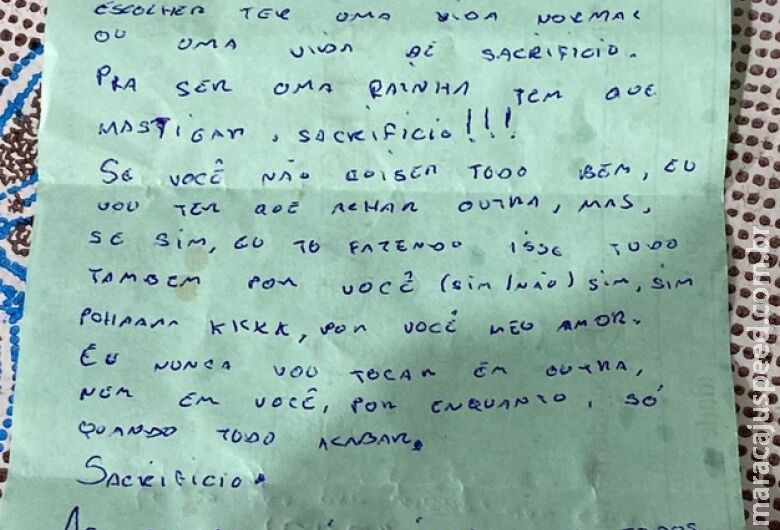 ESCOLHER TER UMA VIDA NORMAL
OU UMA VIDA DE SACRIFICIO.
PRA SER UMA RAINHA TEM QUE
MASTIGAR, SACRIFICIO!!!
SE VOCÊ NÃO QUISER TODO BEM, EU
VOU TER QUE ACHAR OUTRA, MAS,
SE SIM, EU TO FAZENDO ISSE TUDO
TAMBEM POR VOCÊ (SIM/NÃO) SIM, SIM
POHAAAA KKKK, POR VOCÊ MEU AMOR.
EU NUNCA VOU TOCAR EM OUTRA,
NEM EM VOCÊ, POR ENQUANTO, SÓ
QUANDO TUDO ACABAR.
SACRIFICIO.
maracajuspeed.com.br